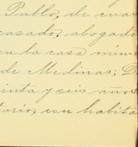 Pablo, de cua
casado, abogado
en la casa núm
de Medinas; D
inta y seis años
torio, con habita